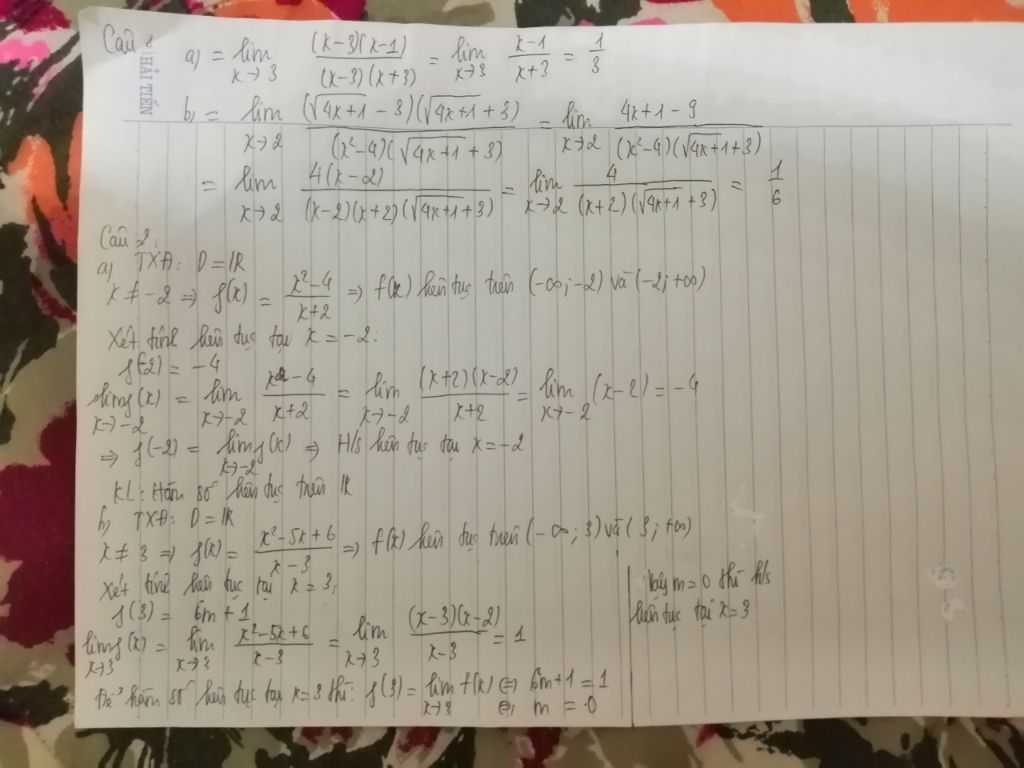 Câu 1
HẢI TIẾN
a) = lim x→3 (x-3)(x-1)/(x-3)(x+3) = lim x→3 x-1/x+3 = 1/3
b) = lim x→2 (√4x+1 - 3)(√4x+1 + 3)/(x²-4)(√4x+1 + 3) = lim x→2 4x+1-9/(x²-4)(√4x+1 + 3)
= lim x→2 4(x-2)/(x-2)(x+2)(√4x+1 + 3) = lim x→2 4/(x+2)(√4x+1 + 3) = 1/6
Câu 2:
a) TXĐ: D = IR
x ≠ -2 ⇒ f(x) = x²-4/x+2 ⇒ f(x) liên tục trên (-∞; -2) và (-2; +∞)
Xét tính liên tục tại x = -2:
f(-2) = -4
lim f(x) x→-2 = lim x→-2 x2-4/x+2 = lim x→-2 (x+2)(x-2)/x+2 = lim x→-2 (x-2) = -4
⇒ f(-2) = lim f(x) x→-2 ⇒ H/s liên tục tại x = -2
KL: Hàm số liên tục trên IR
b, TXĐ: D = IR
x ≠ 3 ⇒ f(x) = x²-5x+6/x-3 ⇒ f(x) liên tục trên (-∞; 3) và (3; +∞)
Xét tính liên tục tại x = 3:
f(3) = 6m+1
lim f(x) x→3 = lim x→3 x²-5x+6/x-3 = lim x→3 (x-3)(x-2)/x-3 = 1
Để hàm số liên tục tại x=3 thì: f(3) = lim f(x) x→3 ⇔ 6m+1 = 1
⇔ m = 0
Vậy m=0 thì h/s
liên tục tại x=3